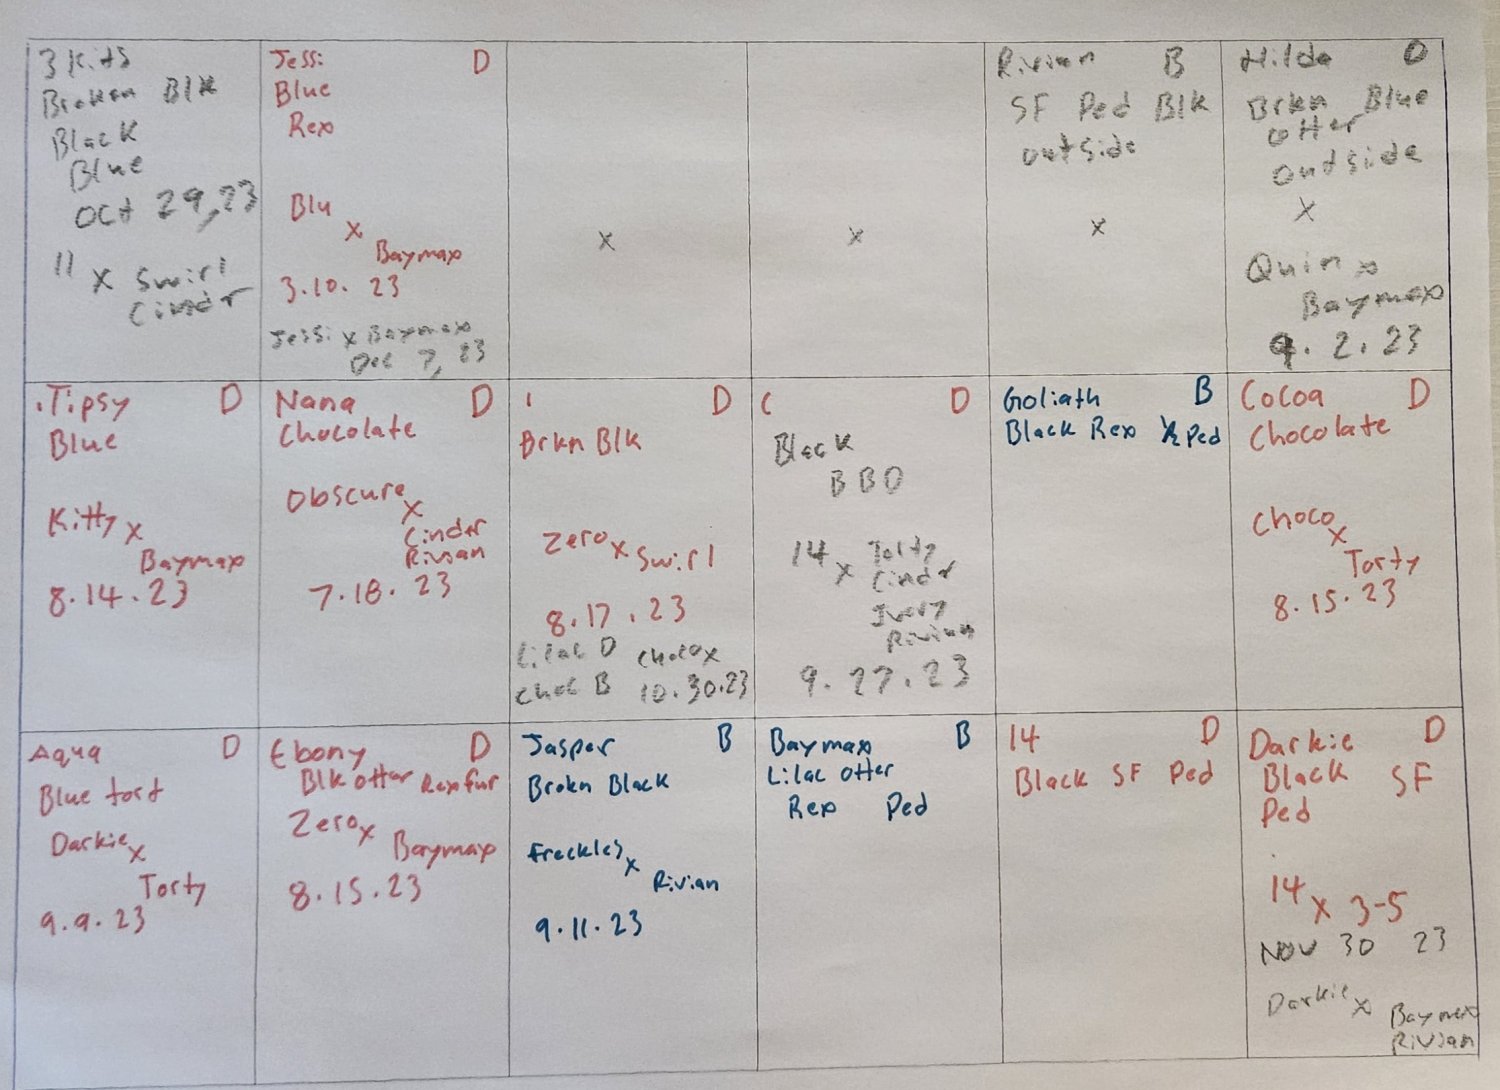 3 Kits
Broken Blk
Black
Blue
Oct 29, 23
11 x Swirl
Cindr
Jessi D
Blue
Rex
Blu
x
Baymax
3.10. 23
Jessi x Baymax
Dec 7, 23
x
x
Rivian B
SF Ped Blk
outside
x
Hilda D
Brkn Blue
otter
outside
x
Quin x
Baymax
9. 2. 23
.Tipsy D
Blue
Kitty x
Baymax
8.14.23
Nana D
Chocolate
Obscure
x
Cindr
Rivian
7.18. 23
1 D
Brkn Blk
Zero x Swirl
8.17 .23
Lilac D Choco x
Choc B 10.30.23
C D
Black
B B O
14 x Torty
Cindr
Ivory
Rivian
9.27.23
Goliath B
Black Rex 1/2 Ped
Cocoa D
Chocolate
Choco
x
Torty
8.15.23
Aqua D
Blue tort
Darkie
x
Torty
9.9.23
Ebony D
Blk otter Rexfur
Zero x
Baymax
8.15.23
Jasper B
Brokn Black
Freckles
x
Rivian
9.11.23
Baymax B
Lilac otter
Rex Ped
14 D
Black SF Ped
Darkie D
Black SF
Ped
14 x 3-5
Nov 30 23
Darkie x
Baymax
Rivian